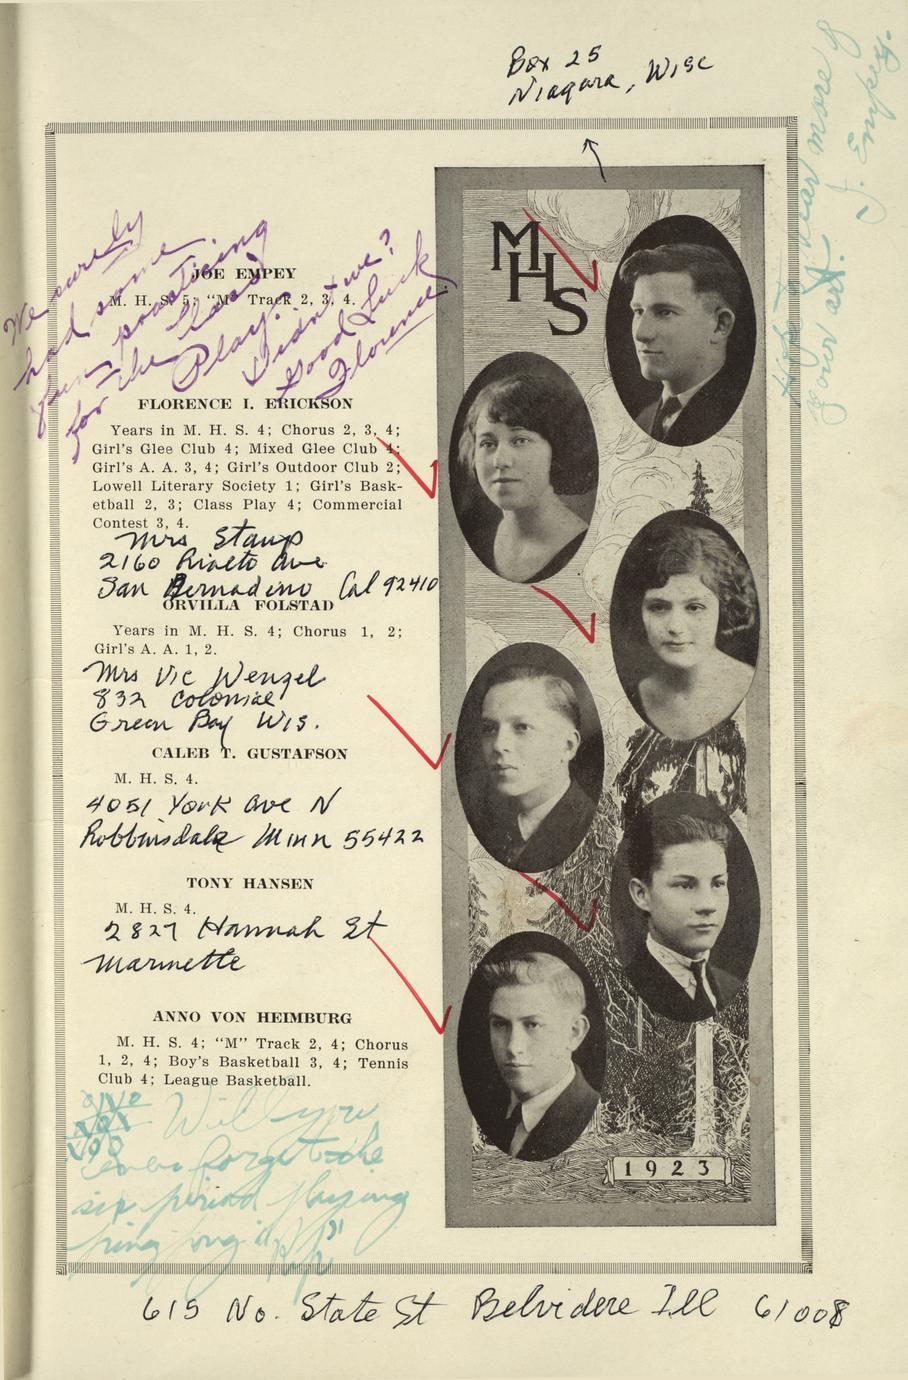 Box 25
Niagara, Wisc
hear more of
your art.
J. Empey.
MHS
We surely
had some
fun practising
for the Class
Play.
Didn't we?
Good Luck
Florence.
JOE EMPEY
M. H. S. 5; "M" Track 2, 3, 4.
FLORENCE I. ERICKSON
Years in M. H. S. 4; Chorus 2, 3, 4;
Girl's Glee Club 4; Mixed Glee Club 4;
Girl's A. A. 3, 4; Girl's Outdoor Club 2;
Lowell Literary Society 1; Girl's Bask-
etball 2, 3; Class Play 4; Commercial
Contest 3, 4.
Mrs Stamp
2160 Rialto Ave
San Bernadino Cal 92410
ORVILLA FOLSTAD
Years in M. H. S. 4; Chorus 1, 2;
Girl's A. A. 1, 2.
Mrs Vic Wenzel
832 Colonial
Green Bay Wis.
CALEB T. GUSTAFSON
M. H. S. 4.
4051 York Ave N
Robbinsdale Minn 55422
TONY HANSEN
M. H. S. 4.
2827 Hannah St
Marinette
ANNO VON HEIMBURG
M. H. S. 4; "M" Track 2, 4; Chorus
1, 2, 4; Boy's Basketball 3, 4; Tennis
Club 4; League Basketball.
Will you
ever forget the
six period playing
ping pong
1923
615 No. State St Belvidere Ill 61008